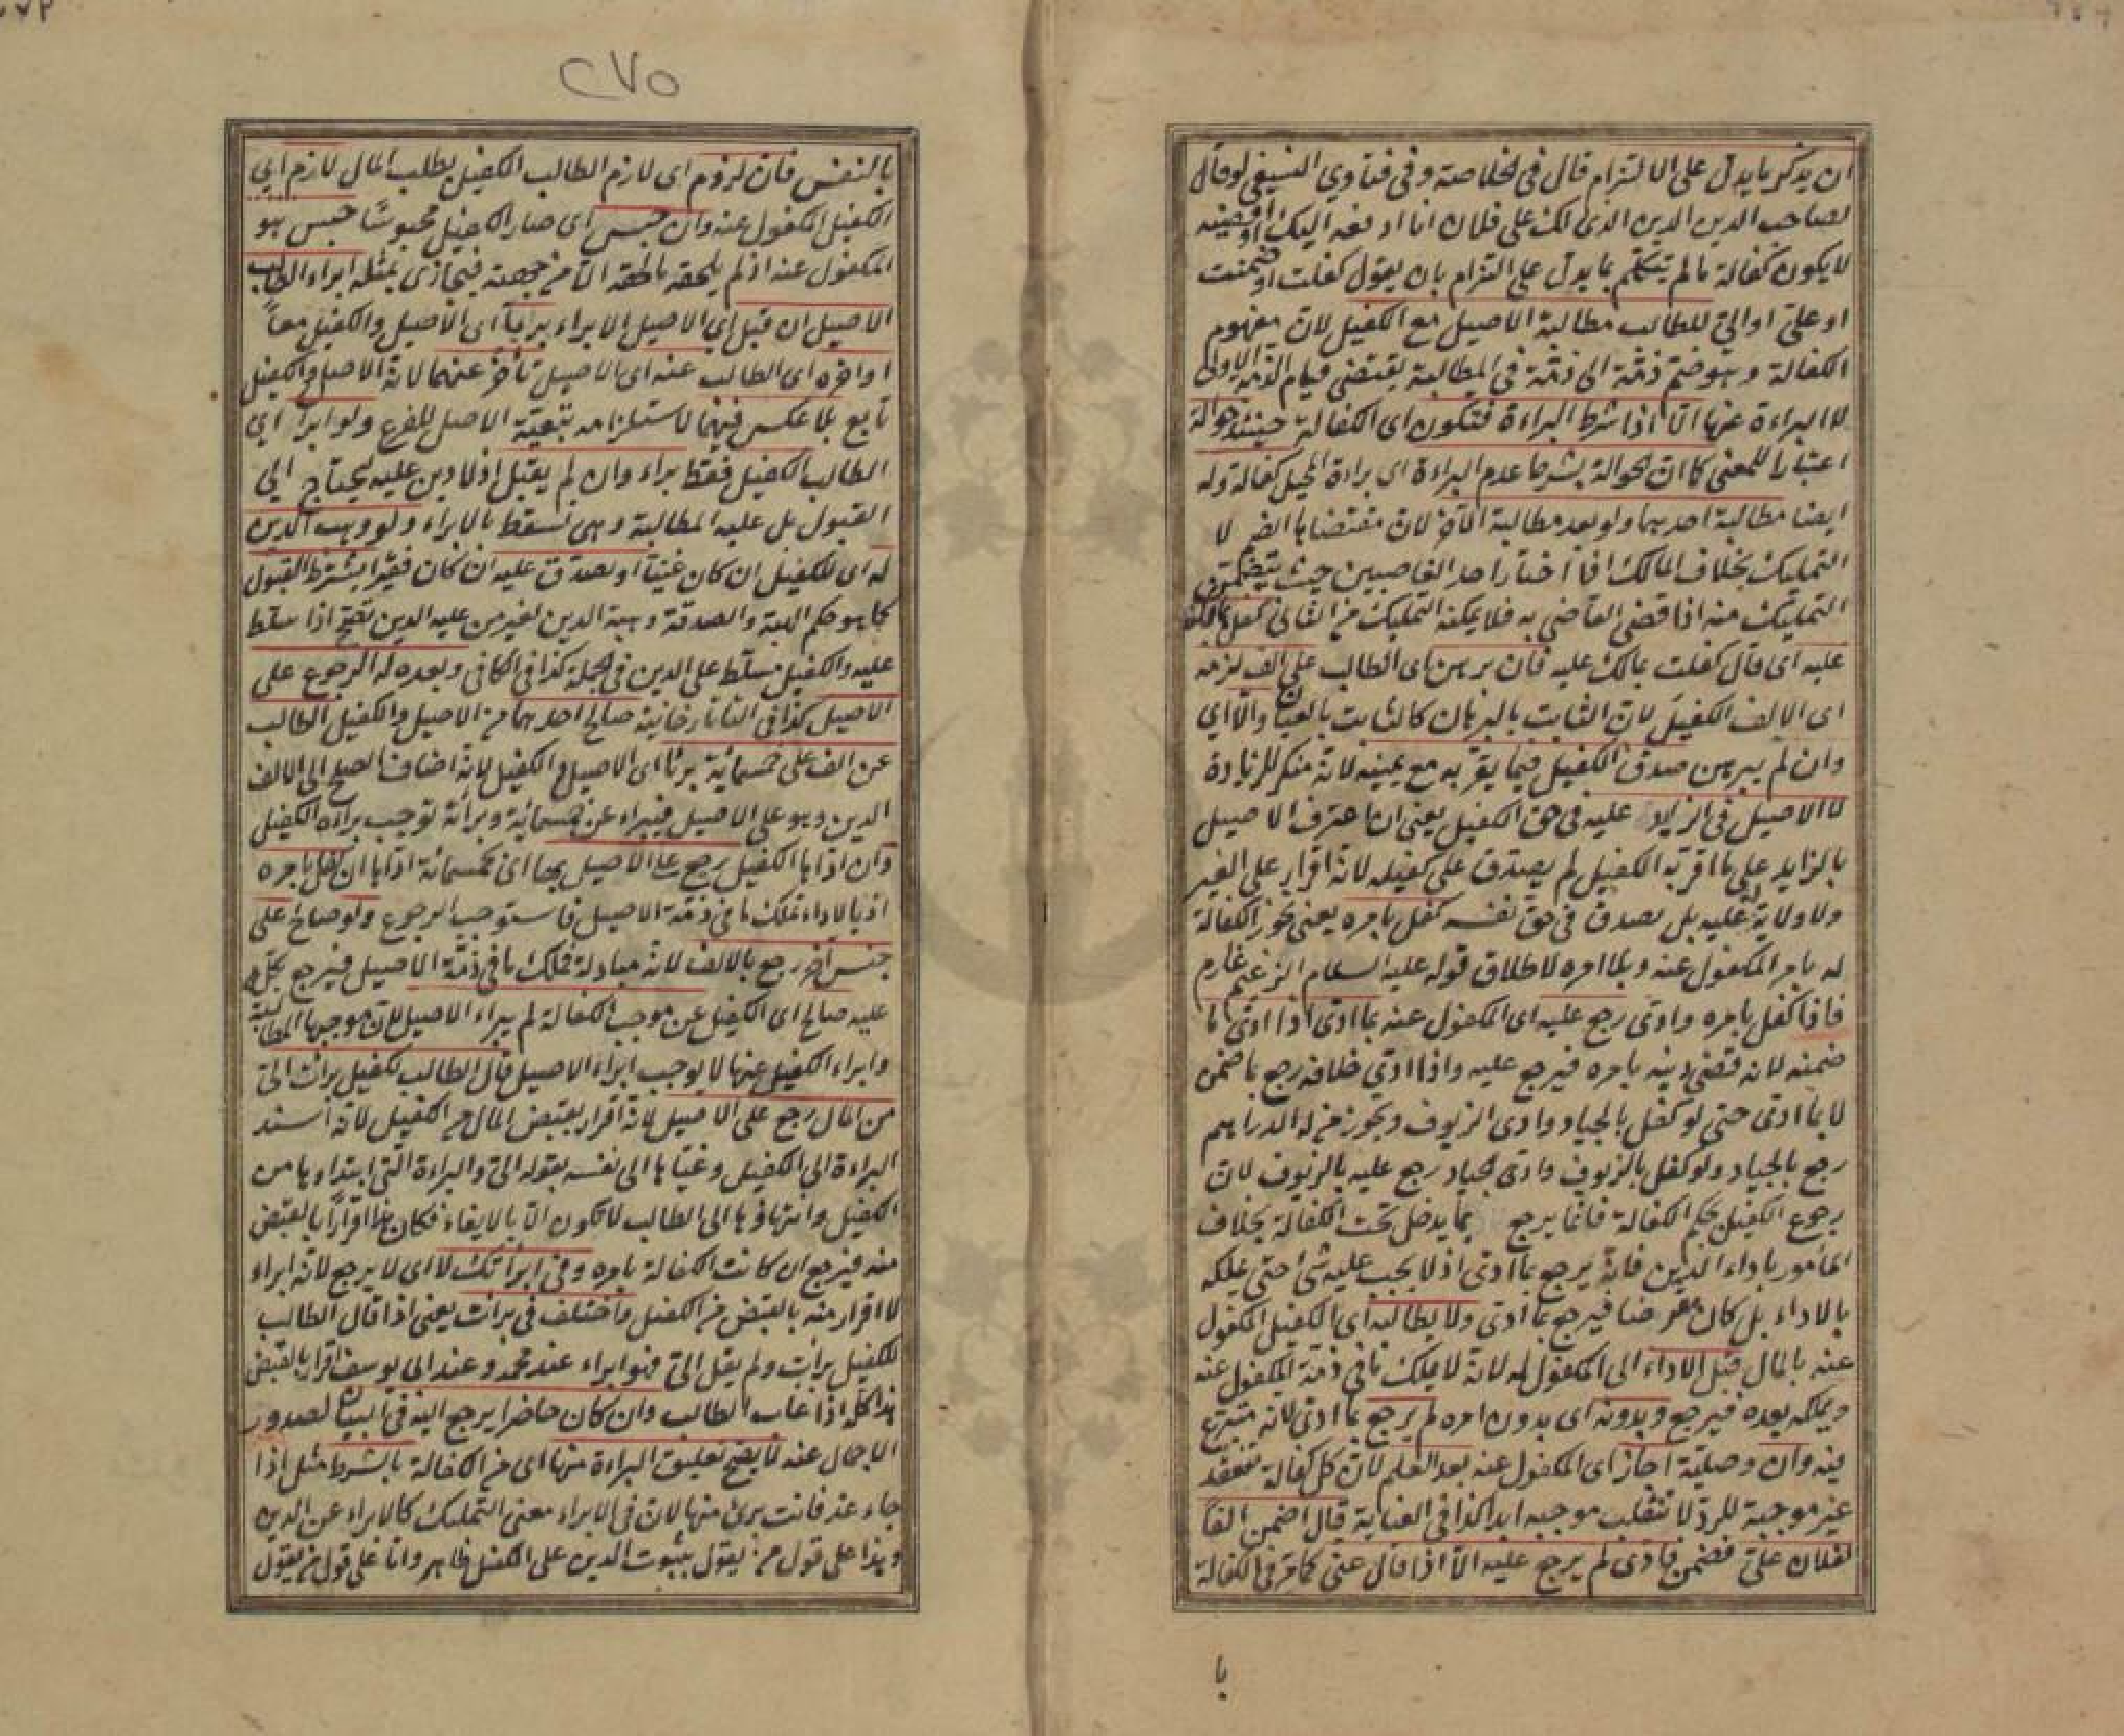 ان يذكر ما يدل على الالتزام قال فى الخلاصة وفى فتاوي النسفي لو قال
لصاحب الدين الدين الذى لك على فلان انا ادفعه اليك او اقضيه
لا يكون كفالة ما لم يتكلم بما يدل على التزام بان يقول كفلت او ضمنت
او على او الىّ للطالب مطالبة الاصيل مع الكفيل لان مفهوم
الكفالة وهو ضم ذمة الى ذمة فى المطالبة يقتضى قيام الذمة الاولى
لا البراءة عنها الا اذا شرط البراءة فتكون اى الكفالة حينئذ حوالة
اعتبارا للمعنى كما ان الحوالة بشرط عدم البراءة اى براءة المحيل كفالة وله
ايضا مطالبة احدهما ولو بعد مطالبة الآخر لان مقتضاها الضم لا
التمليك بخلاف المالك اذا اختار احد الغاصبين حيث يتضمن
التمليك منه اذا قضى القاضى به فلا يمكنه التمليك من الثانى كفل بماله
عليه اى قال كفلت بمالك عليه فان برهن اى الطالب على الف لزمه
اى الالف الكفيل لان الثابت بالبرهان كالثابت بالعيان والا اي
وان لم يبرهن صدق الكفيل فيما يقر به مع يمينه لانه منكر للزيادة
لا الاصيل فى الزايد عليه فى حق الكفيل يعنى ان اعترف الاصيل
بالزايد على ما اقر به الكفيل لم يصدق على كفيله لانه اقرار على الغير
ولا ولاية عليه بل يصدق فى حق نفسه كفل بامره يعنى تجوز الكفالة
له بامر المكفول عنه وبلا امره لاطلاق قوله عليه السلام الزعيم غارم
فاذا كفل بامره وادى رجع عليه اى المكفول عنه بما ادى اذا ادى ما
ضمنه لانه قضى دينه بامره فيرجع عليه واذا ادي خلافه رجع بما ضمن
لا بما ادى حتى لو كفل بالجياد وادى الزيوف وتجوز من له الدراهم
رجع بالجياد ولو كفل بالزيوف وادى الجياد رجع عليه بالزيوف لان
رجوع الكفيل بحكم الكفالة فانما يرجع بما يدخل تحت الكفالة بخلاف
المأمور باداء الدين فانه يرجع بما ادى اذ لا يجب عليه شئ حتى يملكه
بالاداء بل كان مقرضا فيرجع بما ادى ولا يطالبه اى الكفيل المكفول
عنه بالمال قبل الاداء الى المكفول له لانه لا يملك ما فى ذمة المكفول عنه
ويملكه بعده فيرجع وبدونه اى بدون امره لم يرجع بما ادى لانه متبرع
فيه وان وصلية اجاز اى المكفول عنه بعد العلم لان كل كفالة تنعقد
غير موجبة للرد لا تنقلب موجبه ابدا كذا فى العناية قال اضمن الفا
لفلان على فضمن فادى لم يرجع عليه الا اذا قال عنى كما مر فى الكفالة
با
٢٧٥
بالنفس فان لزوم اى لازم الطالب الكفيل بطلب المال لازم اي
الكفيل المكفول عنه وان حبس اى صار الكفيل محبوسا حبس هو
المكفول عنه اذ لم يلحقه ما لحقه الا من جهته فيجازى بمثله ابراء الطالب
الاصيل ان قبل اي الاصيل الابراء برئا اى الاصيل والكفيل معا
او اخره اى الطالب عنه اى الاصيل تأخر عنهما لانه الاصل والكفيل
تابع بلا عكس فيهما لاستلزامه تبعية الاصل للفرع ولو ابرأ اي
الطالب الكفيل فقط براء وان لم يقبل اذ لا دين عليه ليحتاج الى
القبول بل عليه المطالبة وهى تسقط بالابراء ولو وهب الدين
له اى للكفيل ان كان غنيا او تصدق عليه ان كان فقيرا يشترط القبول
كما هو حكم الهبة والصدقة وهبة الدين لغير من عليه الدين تصح اذا سلط
عليه والكفيل مسلط على الدين فى الجملة كذا فى الكافى وبعده له الرجوع على
الاصيل كذا فى التاتارخانية صالح احدهما من الاصيل والكفيل الطالب
عن الف على خمسمائة برئا اى الاصيل والكفيل لانه اضاف الصلح الى الالف
الدين وهو على الاصيل فيبراء عن خمسمائة وبرأته توجب براءة الكفيل
وان اداها الكفيل رجع على الاصيل بها اى بخمسمائة اداها ان كفل بامره
اذ بالاداء تملك ما فى ذمة الاصيل فاستوجب الرجوع ولو صالح على
جنس آخر رجع بالالف لانه مبادلة فملك ما فى ذمة الاصيل فيرجع بكل ما
عليه صالح اى الكفيل عن موجب الكفالة لم يبراء الاصيل لان موجبها المطالبة
وابراء الكفيل عنها لا يوجب ابراء الاصيل قال الطالب لكفيل برأت الىّ
من المال رجع على الاصيل لانه اقرار بقبض المال من الكفيل لانه اسند
البراءة الى الكفيل وغيّاها الى نفسه بقوله الىّ والبراءة التى ابتداوها من
الكفيل وانتهاؤها الى الطالب لا تكون الا بالايفاء فكان هذا اقرارا بالقبض
منه فيرجع ان كانت الكفالة بامره وفى ابرأتك لا اى لا يرجع لانه ابراء
لا اقرار منه بالقبض من الكفيل واختلف فى برأت يعنى اذا قال الطالب
للكفيل برأت ولم يقل الىّ فهو ابراء عند محمد وعند ابى يوسف اقرار بالقبض
هذا كله اذا غاب الطالب وان كان حاضرا يرجع اليه فى البيان لصدور
الاجمال عنه لا يصح تعليق البراءة منها اى من الكفالة بالشرط مثل اذا
جاء غد فانت برئ منها لان فى الابراء معنى التمليك كالابراء عن الدين
وهذا على قول من يقول بثبوت الدين على الكفيل ظاهر واما على قول من يقول